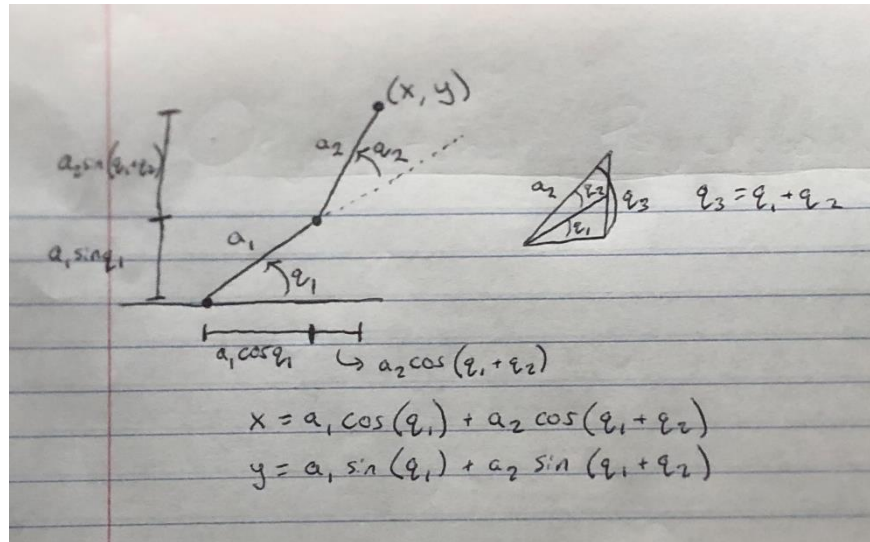 (x, y)
a₂ sin(q₁+q₂)
a₂
q₂
a₂
q₂
q₃
q₃ = q₁ + q₂
q₁
a₁
a₁ sinq₁
q₁
a₁ cosq₁
↳ a₂ cos (q₁ + q₂)
x = a₁ cos(q₁) + a₂ cos(q₁ + q₂)
y = a₁ sin (q₁) + a₂ sin (q₁ + q₂)